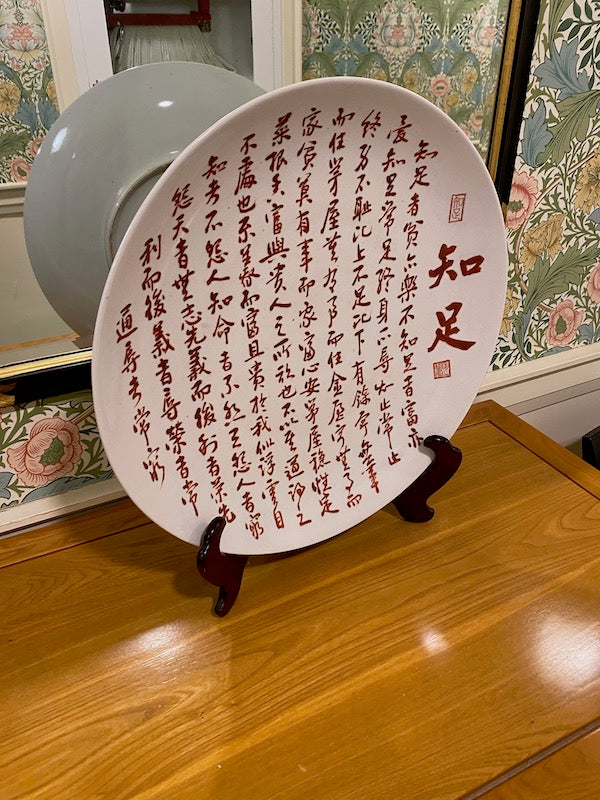 知足
知足者貧亦樂不知足者富亦
憂知足常足終身不辱知止常止
終身不恥比上不足比下有餘寧無事
而住茅屋有事而住金庭寧無事而
家貧莫有事而家富心安茅屋穩性定
菜根香富與貴人之所欲也不以其道得之
不處也不義而富且貴於我如浮雲自
知者不怨人知命者不怨天怨人者窮
怨天者無志先義而後利者榮先
利而後義者辱榮者常
通辱者常窮